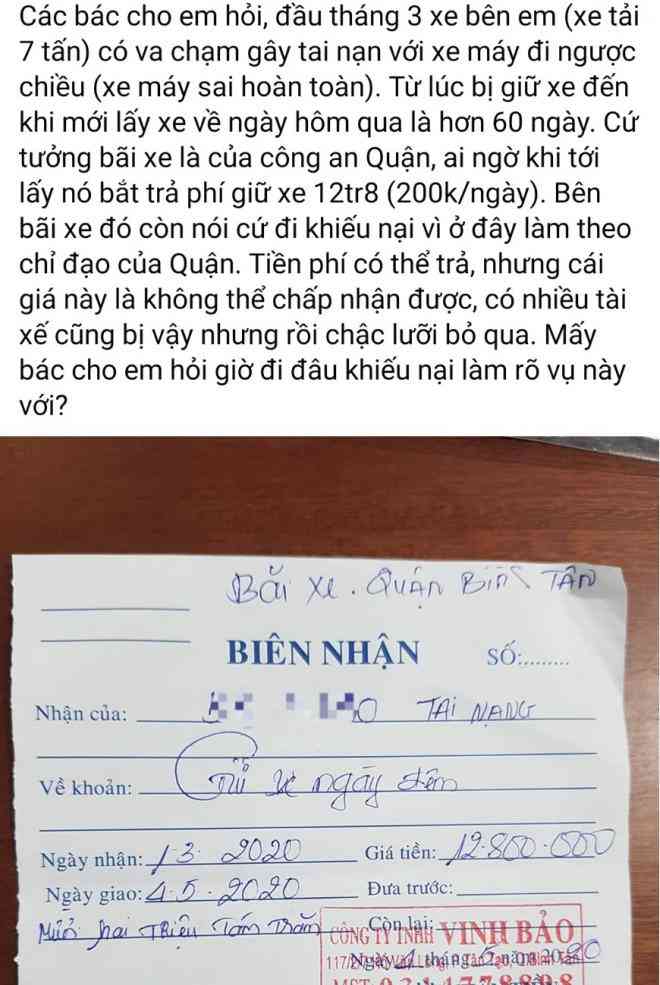 Các bác cho em hỏi, đầu tháng 3 xe bên em (xe tải
7 tấn) có va chạm gây tai nạn với xe máy đi ngược
chiều (xe máy sai hoàn toàn). Từ lúc bị giữ xe đến
khi mới lấy xe về ngày hôm qua là hơn 60 ngày. Cứ
tưởng bãi xe là của công an Quận, ai ngờ khi tới
lấy nó bắt trả phí giữ xe 12tr8 (200k/ngày). Bên
bãi xe đó còn nói cứ đi khiếu nại vì ở đây làm theo
chỉ đạo của Quận. Tiền phí có thể trả, nhưng cái
giá này là không thể chấp nhận được, có nhiều tài
xế cũng bị vậy nhưng rồi chậc lưỡi bỏ qua. Mấy
bác cho em hỏi giờ đi đâu khiếu nại làm rõ vụ này
với?
Bãi xe. QUẬN Bình TÂN
BIÊN NHẬN SỐ:.........
Nhận của: TAi NANG
Về khoản: Giữ xe ngày đêm
Ngày nhận: 1 3 2020 Giá tiền: 12.800.000
Ngày giao: 4.5.2020 Đưa trước:
hai Triệu Tám Trăm Còn lại:
CÔNG TY TNHH VINH BẢO
Ngày 4 tháng 5 năm 2020